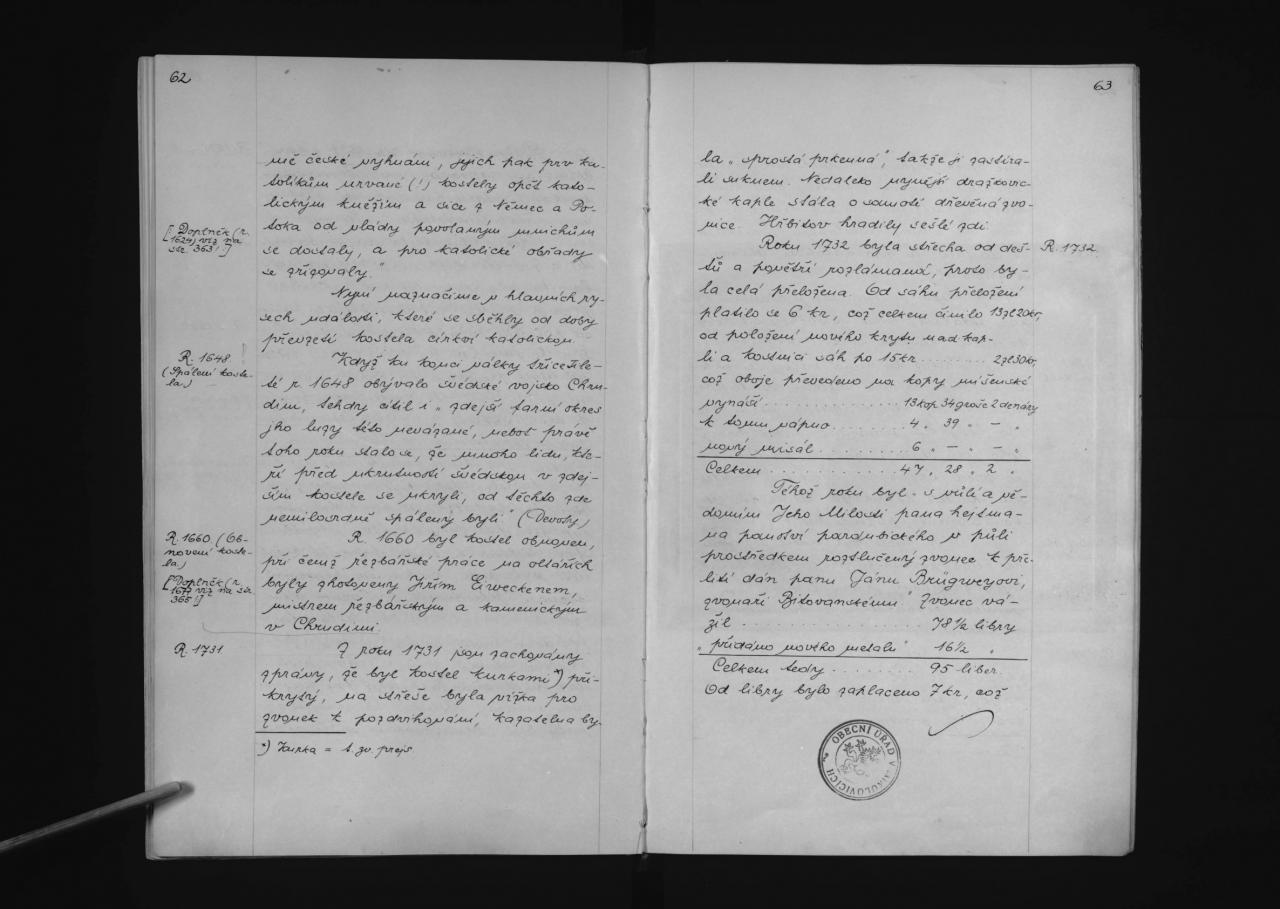 62
ně české vyhnáni, jejich pak prv ka-
tolíkům urvané (!) kostely opět kato-
lickým kněžím a sice z Němec a Po-
[Doplněk (r.
1624) viz na
str. 363!]
lska od vlády povolaným mnichům
se dostaly, a pro katolické obřady
se zřizovaly."
Nyní naznačíme v hlavních ry-
sech události, které se sběhly od doby
převzetí kostela církví katolickou.
R. 1648
(Spálení koste-
la)
Když ku konci války třicetile-
té r. 1648 obývalo švédské vojsko Chru-
dim, tehdy cítil i "zdejší farní okres
jho luzy této nevázané, neboť právě
toho roku stalo se, že mnoho lidu, kte-
ří před ukrutností švédskou v zdej-
ším kostele se ukryli, od těchto zde
nemilosrdně spáleny byli" (Devoty)
R. 1660. (Ob-
novení koste-
la)
R. 1660 byl kostel obnoven,
při čemž řezbářské práce na oltářích
[Doplněk (r.
1677 viz na str.
365!]
byly zhotoveny Jiřím Eiweckenem,
mistrem řezbářským a kamenickým
v Chrudimi.
R. 1731
Z roku 1731 jsou zachovány
zprávy, že byl kostel kurkami*) při-
krytý, na střeše byla vížka pro
zvonek k pozdvihování, kazatelna by-
*) Kurka = t. zv. prejs
63
la "sprostá prkenná", takže ji zastíra-
li suknem. Nedaleko nynější dražkovic-
ké kaple stála o samotě dřevěná zvo-
nice. Hřbitov hradily sešlé zdi.
Roku 1732 byla střecha od deš-
R. 1732.
tů a povětří rozlámaná, proto by-
la celá přeložena. Od sáhu přeložení
platilo se 6 kr, což celkem činilo 13 zl 20 kr,
od položení nového krytu nad kap-
li a kostnicí sáh po 15 kr ........ 2 zl 30 kr,
což oboje převedeno na kopy míšenské
vynáší .............. 13 kop 34 groše 2 denáry
k tomu vápno .......... 4 " 39 " — "
nový misál .......... 6 " — " — "
Celkem .............. 47 " 28 " 2 "
Téhož roku byl "s vůlí a vě-
domím Jeho Milosti pana hejtma-
na panství pardubického v půli
prostředkem roztlučený zvonec k pře-
lití dán panu Jánu Brügweyovi,
zvonaři Bitovanskému." Zvonec vá-
žil .................. 78 1/2 libry
"přidáno nového metalu" 16 1/2 "
Celkem tedy ........ 95 liber.
Od libry bylo zaplaceno 7 kr, což
OBECNÍ ÚŘAD V MIKULOVICÍCH